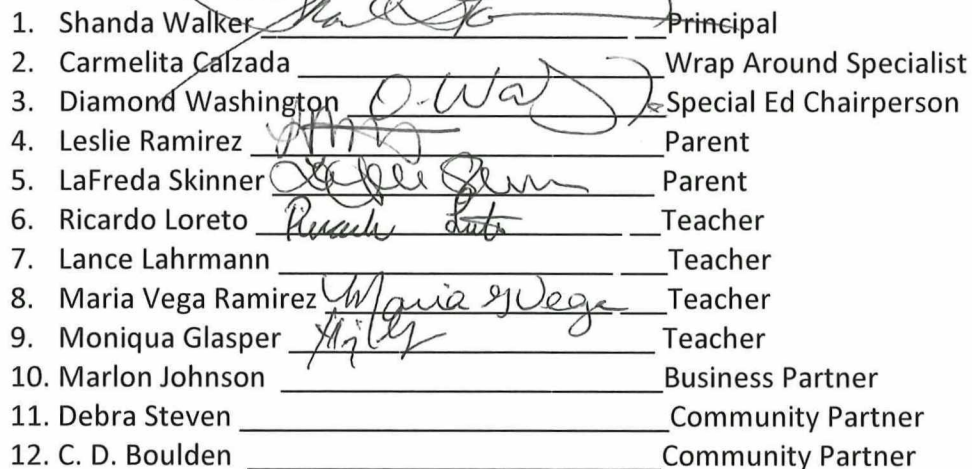 1. Shanda Walker Principal
2. Carmelita Calzada Wrap Around Specialist
3. Diamond Washington D. Wa Special Ed Chairperson
4. Leslie Ramirez Parent
5. LaFreda Skinner Parent
6. Ricardo Loreto Teacher
7. Lance Lahrmann Teacher
8. Maria Vega Ramirez Maria Vega Teacher
9. Moniqua Glasper Teacher
10. Marlon Johnson Business Partner
11. Debra Steven Community Partner
12. C. D. Boulden Community Partner